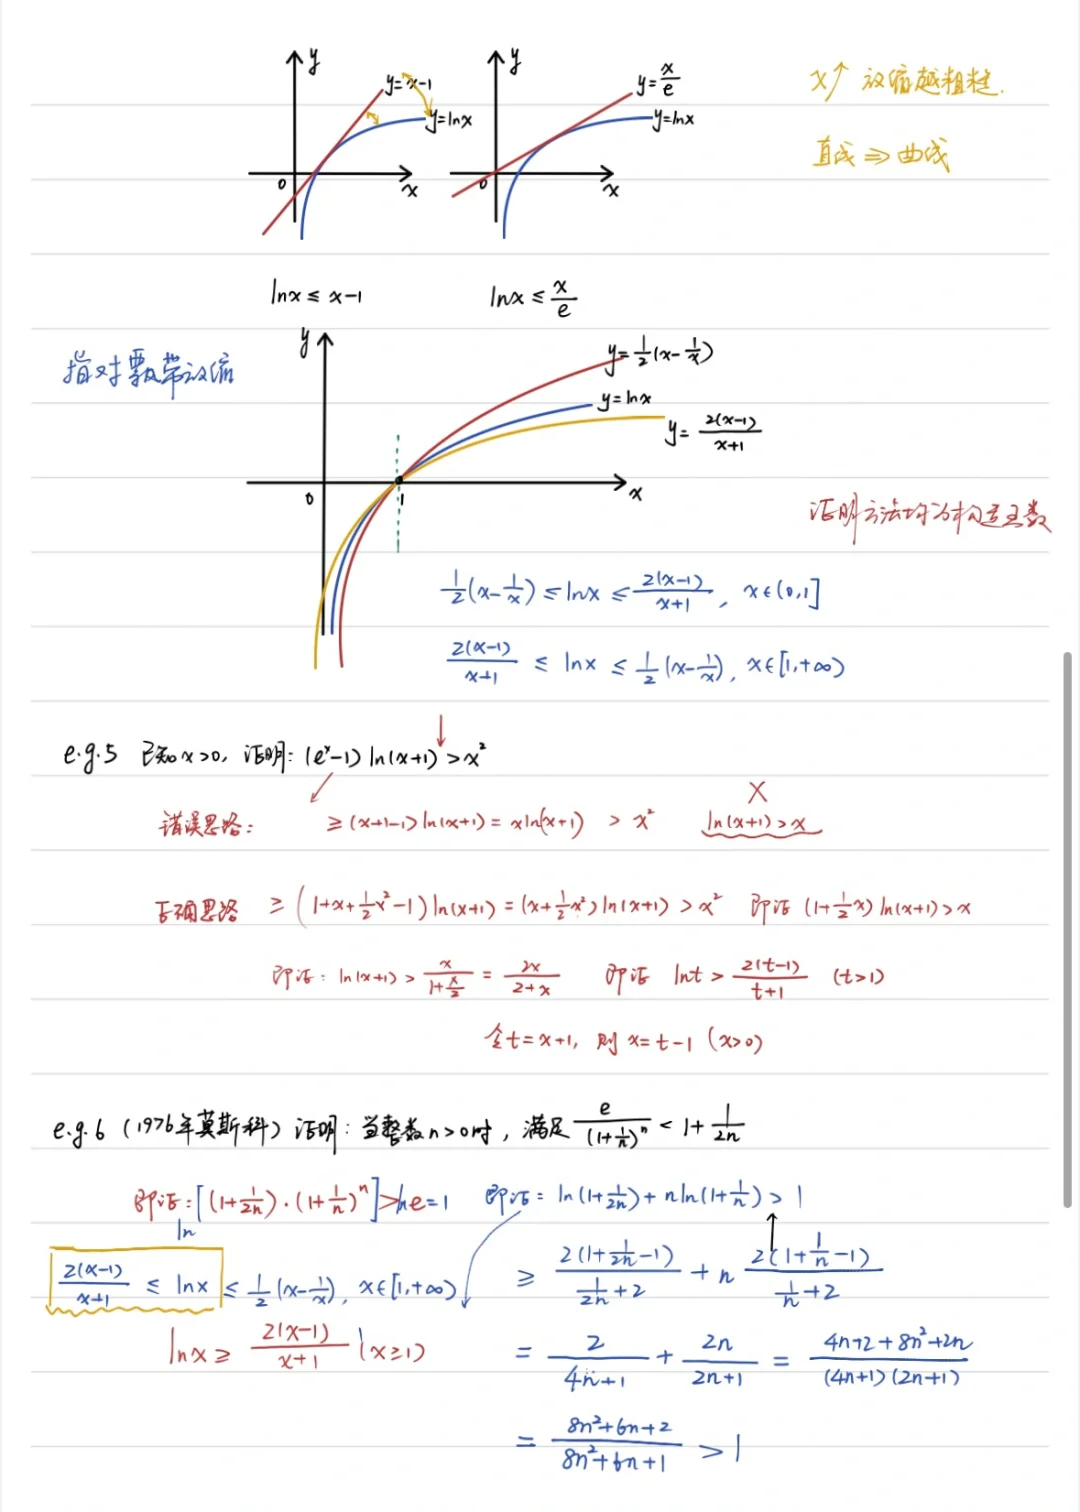 y
y=x-1
y=lnx
0
x
y
y=x/e
y=lnx
0
x
x↑ 放缩越粗糙.
直线 ⇒ 曲线
lnx ≤ x-1
lnx ≤ x/e
指对飘带放缩
y
y=1/2(x-1/x)
y=lnx
y=2(x-1)/(x+1)
0
1
x
证明方法均为构造函数
1/2(x-1/x) ≤ lnx ≤ 2(x-1)/(x+1), x∈(0,1]
2(x-1)/(x+1) ≤ lnx ≤ 1/2(x-1/x), x∈[1,+∞)
e.g.5 已知x>0, 证明: (eˣ-1)ln(x+1)>x²
错误思路: ≥(x+1-1)ln(x+1)=xln(x+1) > x² ln(x+1)>x X
正确思路 ≥(1+x+1/2x²-1)ln(x+1)=(x+1/2x²)ln(x+1)>x² 即证 (1+1/2x)ln(x+1)>x
即证: ln(x+1)> x/(1+x/2) = 2x/(2+x) 即证 lnt > 2(t-1)/(t+1) (t>1)
令t=x+1, 则 x=t-1 (x>0)
e.g.6 (1976年莫斯科) 证明: 当整数n>0时, 满足 e/(1+1/n)ⁿ < 1+1/2n
即证: ln[(1+1/2n)·(1+1/n)ⁿ]>lne=1 即证: ln(1+1/2n)+nln(1+1/n)>1
2(x-1)/(x+1) ≤ lnx ≤ 1/2(x-1/x), x∈[1,+∞)
≥ 2(1+1/2n-1)/(1/2n+2) + n 2(1+1/n-1)/(1/n+2)
lnx ≥ 2(x-1)/(x+1) (x≥1)
= 2/(4n+1) + 2n/(2n+1) = (4n+2+8n²+2n)/((4n+1)(2n+1))
= (8n²+6n+2)/(8n²+6n+1) > 1